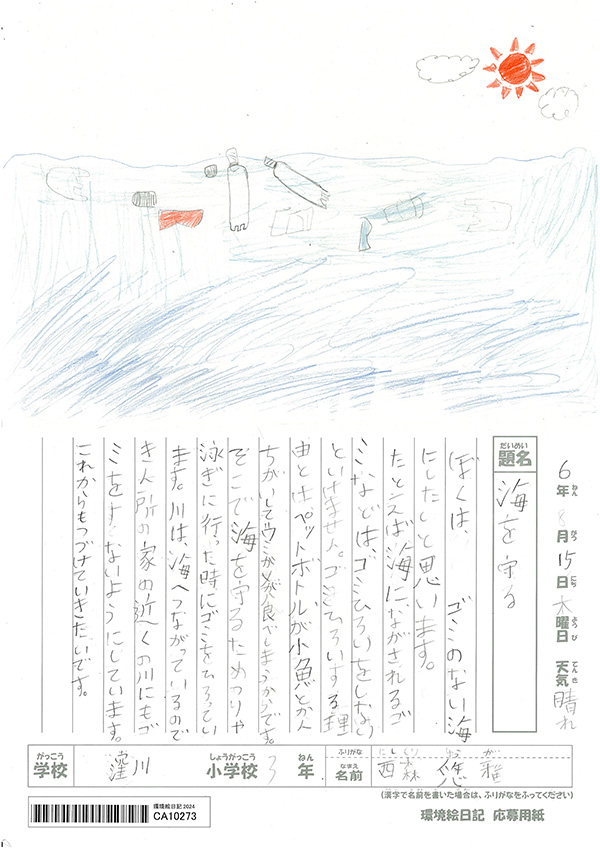 6年8月15日木曜日 天気晴れ
ねん がつ にち ようび てんき
だいめい
題名 海を守る
ぼくは、 ゴミのない海
にしたいと思います。
たとえば海にながされるゴ
ミなどは、ゴミひろいをしない
といけません。ゴミひろいする理
由とはペットボトルが小魚とかん
ちがいしてウミが発食べしまうからです。
そこで海を守るためつりや
泳ぎに行った時にゴミをひろってい
ます。川は、海へつながっているので
きん所の家の近くの川にもゴ
ミをすてないようにしています。
これからもつづけていきたいです。
がっこう しょうがっこう ねん
学校 窪川 小学校 3年
ふりがな にしもり ゆう が
なまえ
名前 西森 悠雅
(漢字で名前を書いた場合は、ふりがなをふってください)
環境絵日記 2024
CA10273
環境絵日記 応募用紙